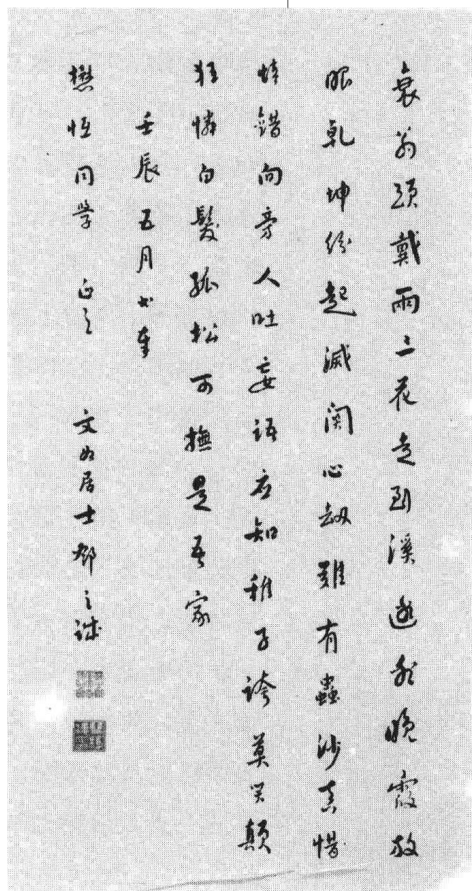 衰翁頭戴兩三花走到溪邊看晚霞放
眼乾坤紛起滅關心劫難有蟲沙真惜
情錯向旁人吐妄語應知稚子誇莫笑顛
狂憐白髮孤松可撫是吾家
壬辰五月书奉
懋恆同學 正之 文如居士鄧之誠